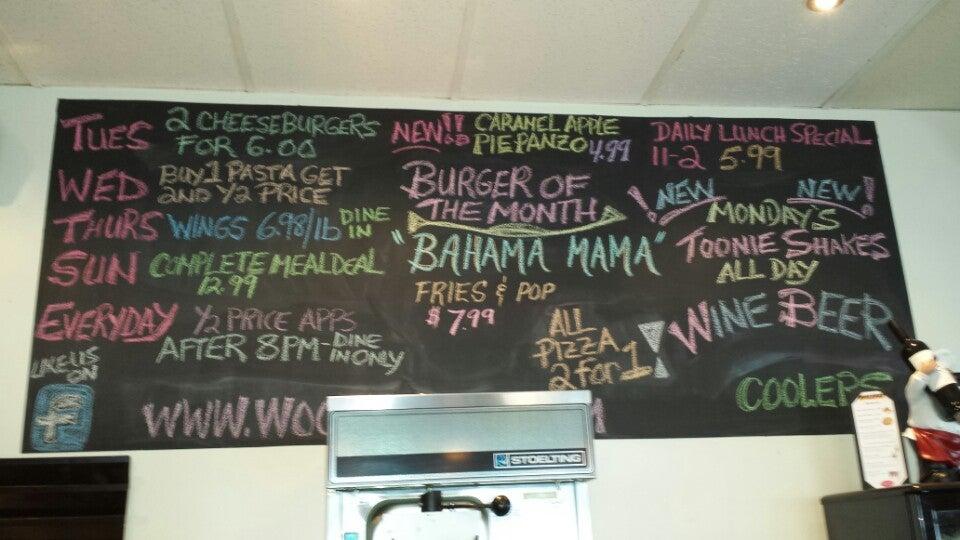 TUES 2 CHEESEBURGERS
FOR 6.00
WED BUY 1 PASTA GET
2ND 1/2 PRICE
THURS WINGS 6.98/lb DINE
IN
SUN COMPLETE MEAL DEAL
12.99
EVERYDAY 1/2 PRICE APPS
AFTER 8PM-DINE
IN ONLY
LIKE US
ON
f
WWW.WOO
M
NEW!! CARAMEL APPLE
PIE PANZO 4.99
BURGER OF
THE MONTH
"BAHAMA MAMA"
FRIES & POP
$7.99
ALL
PIZZA
2 for 1!
DAILY LUNCH SPECIAL
11-2 5.99
! NEW NEW !
MONDAYS
TOONIE SHAKES
ALL DAY
WINE BEER
COOLERS
STOELTING